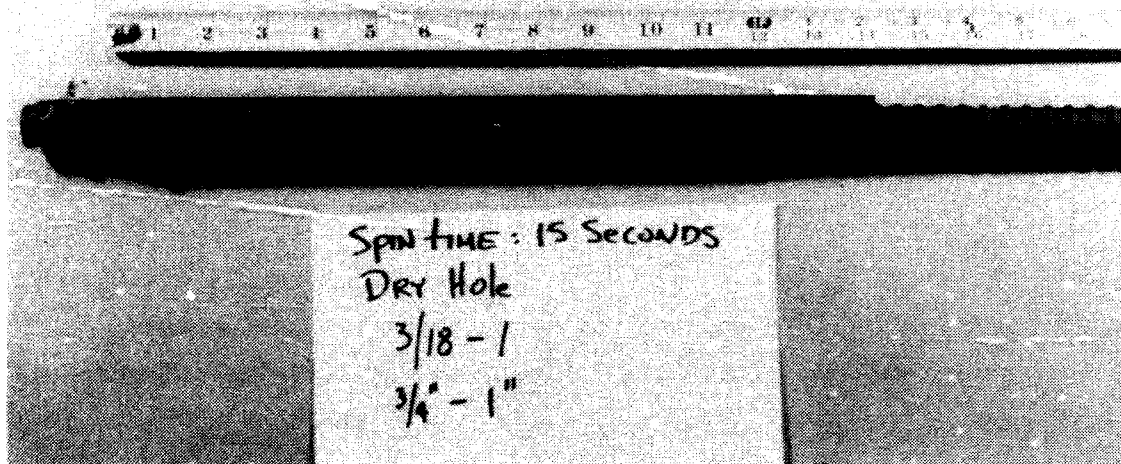 1 2 3 4 5 6 7 8 9 10 11
SPIN TIME : 15 SECONDS
DRY Hole
3/18 - 1
3/4" - 1"